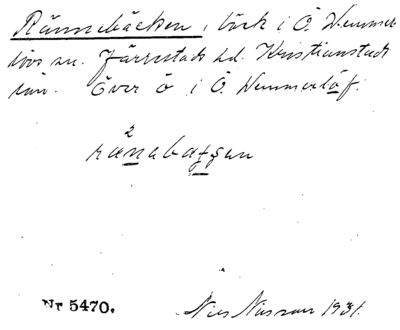 Rännebäcken, bäck i Ö. Vemmer
lövs sn. Järrestads hd. Kristianstads
län. Över ö i Ö. Vemmerlöf.
2
Nr 5470.
Nils Nilsson 1931.